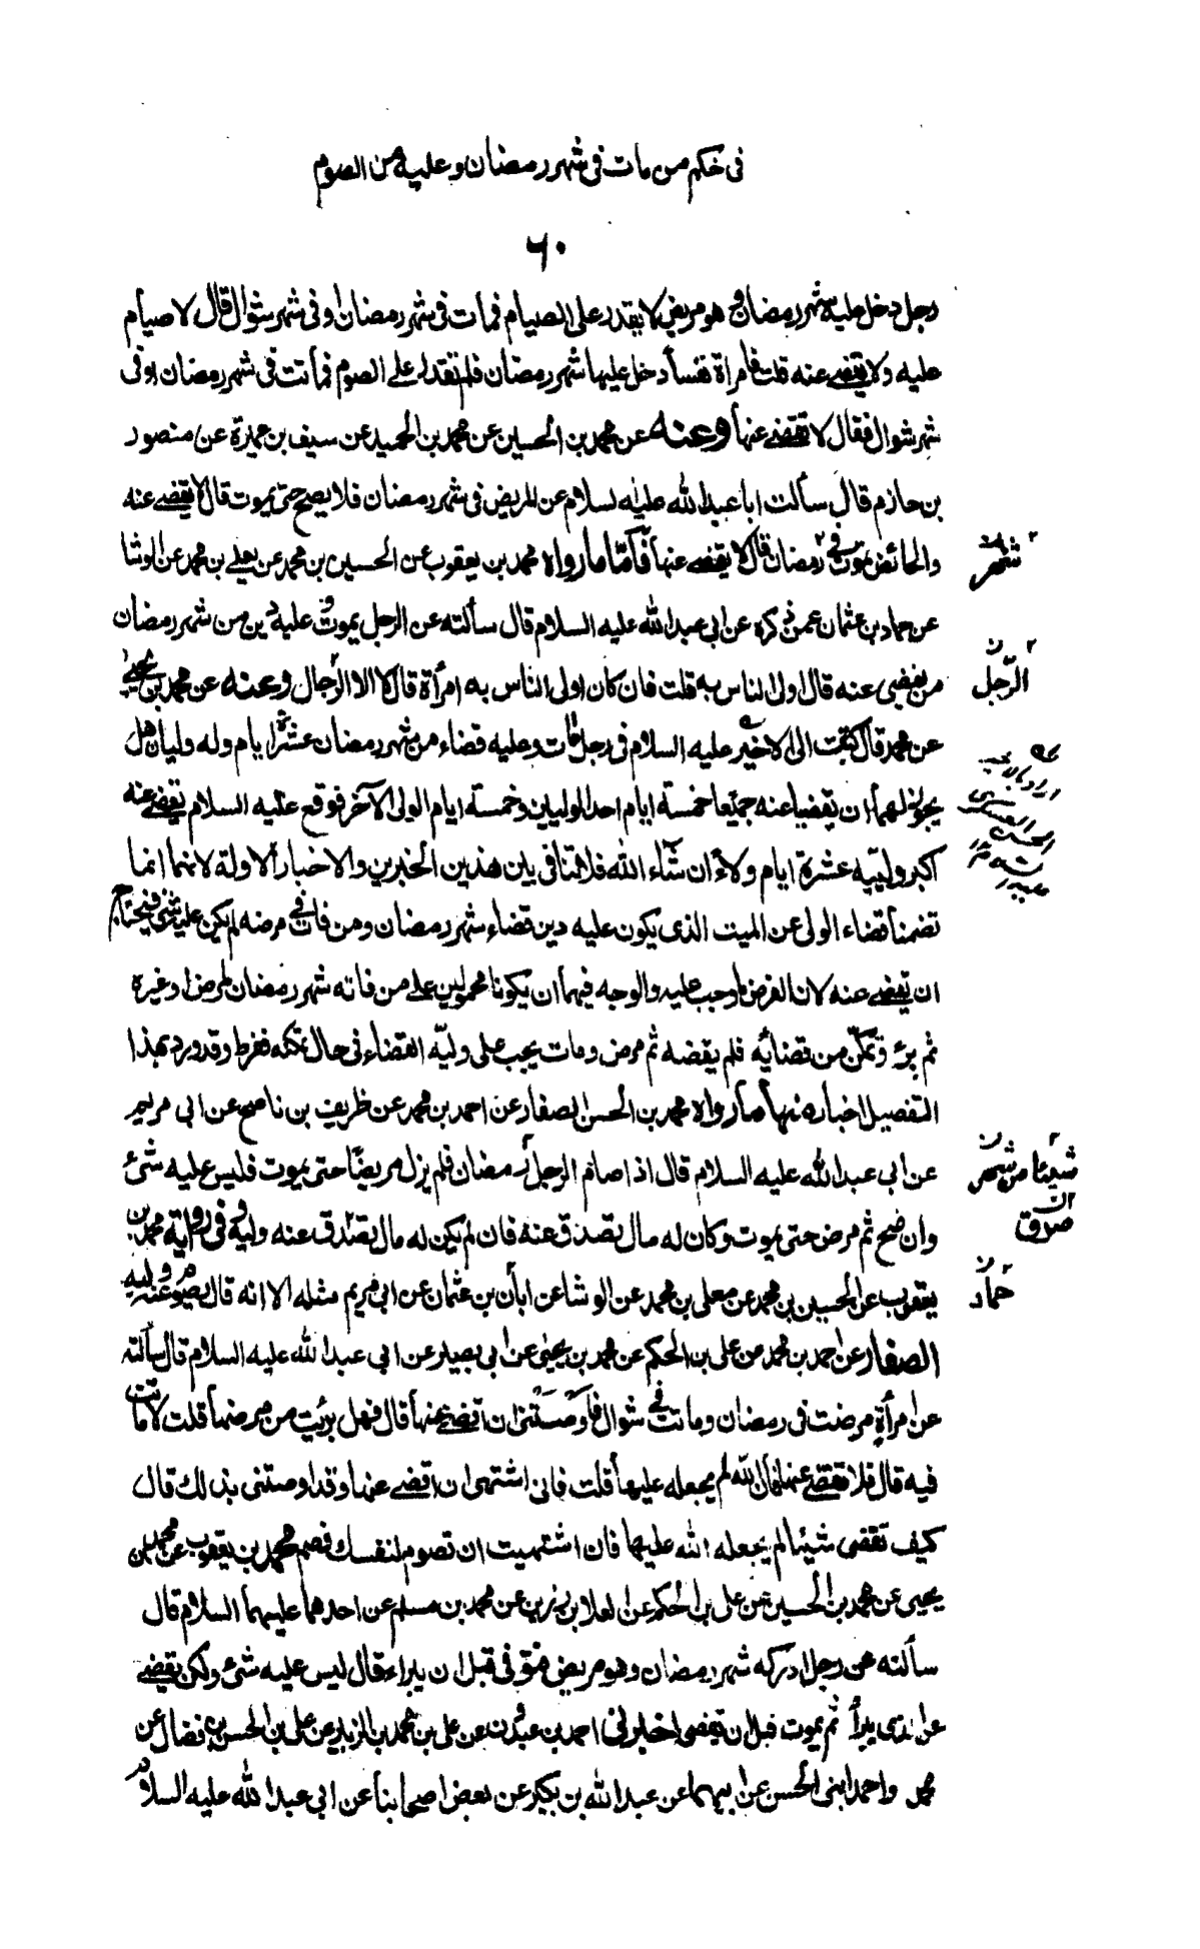 فى حكم من مات فى شهر رمضان وعليه من الصوم
٦٠
رجل دخل عليه شهر رمضان وهو مريض لا يقدر على الصيام فمات فى شهر رمضان او فى شهر شوال قال لا صيام
عليه ولا يقضى عنه قلت فامراة نفسأ دخل عليها شهر رمضان فلم تقدر على الصوم فماتت فى شهر رمضان او فى
شهر شوال فقال لا تقضى عنها وعنه عن محمد بن الحسين عن محمد بن الحميد عن سيف بن عميرة عن منصور
بن حازم قال سألت ابا عبدالله عليه السلام عن المريض فى شهر رمضان فلا يصح حتى يموت قال لا يقضى عنه
والحائض تموت فى رمضان قال لا يقضى عنها فأمّا ما رواه محمد بن يعقوب عن الحسين بن محمد عن معلى بن محمد عن الوشا
شهر
عن حماد بن عثمان عمن ذكره عن ابى عبدالله عليه السلام قال سألته عن الرجل يموت وعليه دين من شهر رمضان
من يقضى عنه قال اولى الناس به قلت فان كان اولى الناس به امرأة قال لا الا الرجال وعنه عن محمد بن يحيى
الرّجل
عن محمد قال كتبت الى الاخير عليه السلام فى رجل مات وعليه قضاء من شهر رمضان عشرة ايام وله وليان هل
يجوز لهما ان يقضيا عنه جميعا خمسة ايام احد الوليين وخمسة ايام الولى الآخر فوقع عليه السلام يقضى عنه
اكبر ولييه عشرة ايام ولاء ان شاء الله فلا تنافى بين هذين الخبرين والاخبار الاولة لانهما انما
تضمنا قضاء الولى عن الميت الذى يكون عليه دين قضاء شهر رمضان ومن فات فى مرضه لم يكن عليه شئ فيحتاج
ان يقضى عنه لان الفرض ما وجب عليه والوجه فيهما ان يكونا محمولين على من فاته شهر رمضان لمرض او غيره
ثم برء وتمكّن من قضائه فلم يقضه ثم مرض ومات يجب على وليّه القضاء فى حال تمكنه ففرط وقد ورد بهذا
التفصيل اخباره منها ما رواه محمد بن الحسن الصفار عن احمد بن محمد عن ظريف بن ناصح عن ابى مريم
عن ابى عبدالله عليه السلام قال اذا صام الرجل رمضان فلم يزل مريضًا حتى يموت فليس عليه شئ
شيئا من شهر
وان صح ثم مرض حتى يموت وكان له مال تصدق عنه فان لم يكن له مال تصدق عنه وليه وفى رواية محمد بن
يعقوب عن الحسين بن محمد عن معلى بن محمد عن الوشا عن ابأن بن عثمان عن ابى مريم مثله الا انه قال يصوم عنه وليه
حمّاد
الصفار عن احمد بن محمد عن على بن الحكم عن محمد بن يحيى عن ابى بصير عن ابى عبدالله عليه السلام قال سألته
عن امرأة مرضت فى رمضان وماتت فى شوال فأوصتنى ان اقضى عنها قال فهل برئت من مرضها قلت لا ماتت
فيه قال فلا تقضى عنها فان الله لم يجعله عليها قلت فانى اشتهى ان اقضى عنها وقد اوصتنى بذلك قال
كيف تقضى شيئا لم يجعله الله عليها فان اشتهيت ان تصوم لنفسك فصم محمد بن يعقوب عن محمد بن
يحيى عن محمد بن الحسين عن على بن الحكم عن العلا بن رزين عن محمد بن مسلم عن احدهما عليهما السلام قال
سألته عن رجل ادركه شهر رمضان وهو مريض فتوفى قبل ان يبراء قال ليس عليه شئ ولكن يقضى
عن الذى يبرأ ثم يموت قبل ان يقضى اخبرنى احمد بن عبدون عن على بن محمد بن الزبير عن على بن الحسن بن فضال عن
محمد واحمد ابنى الحسن عن ابيهما عن عبدالله بن بكير عن بعض اصحابنا عن ابى عبدالله عليه السلام